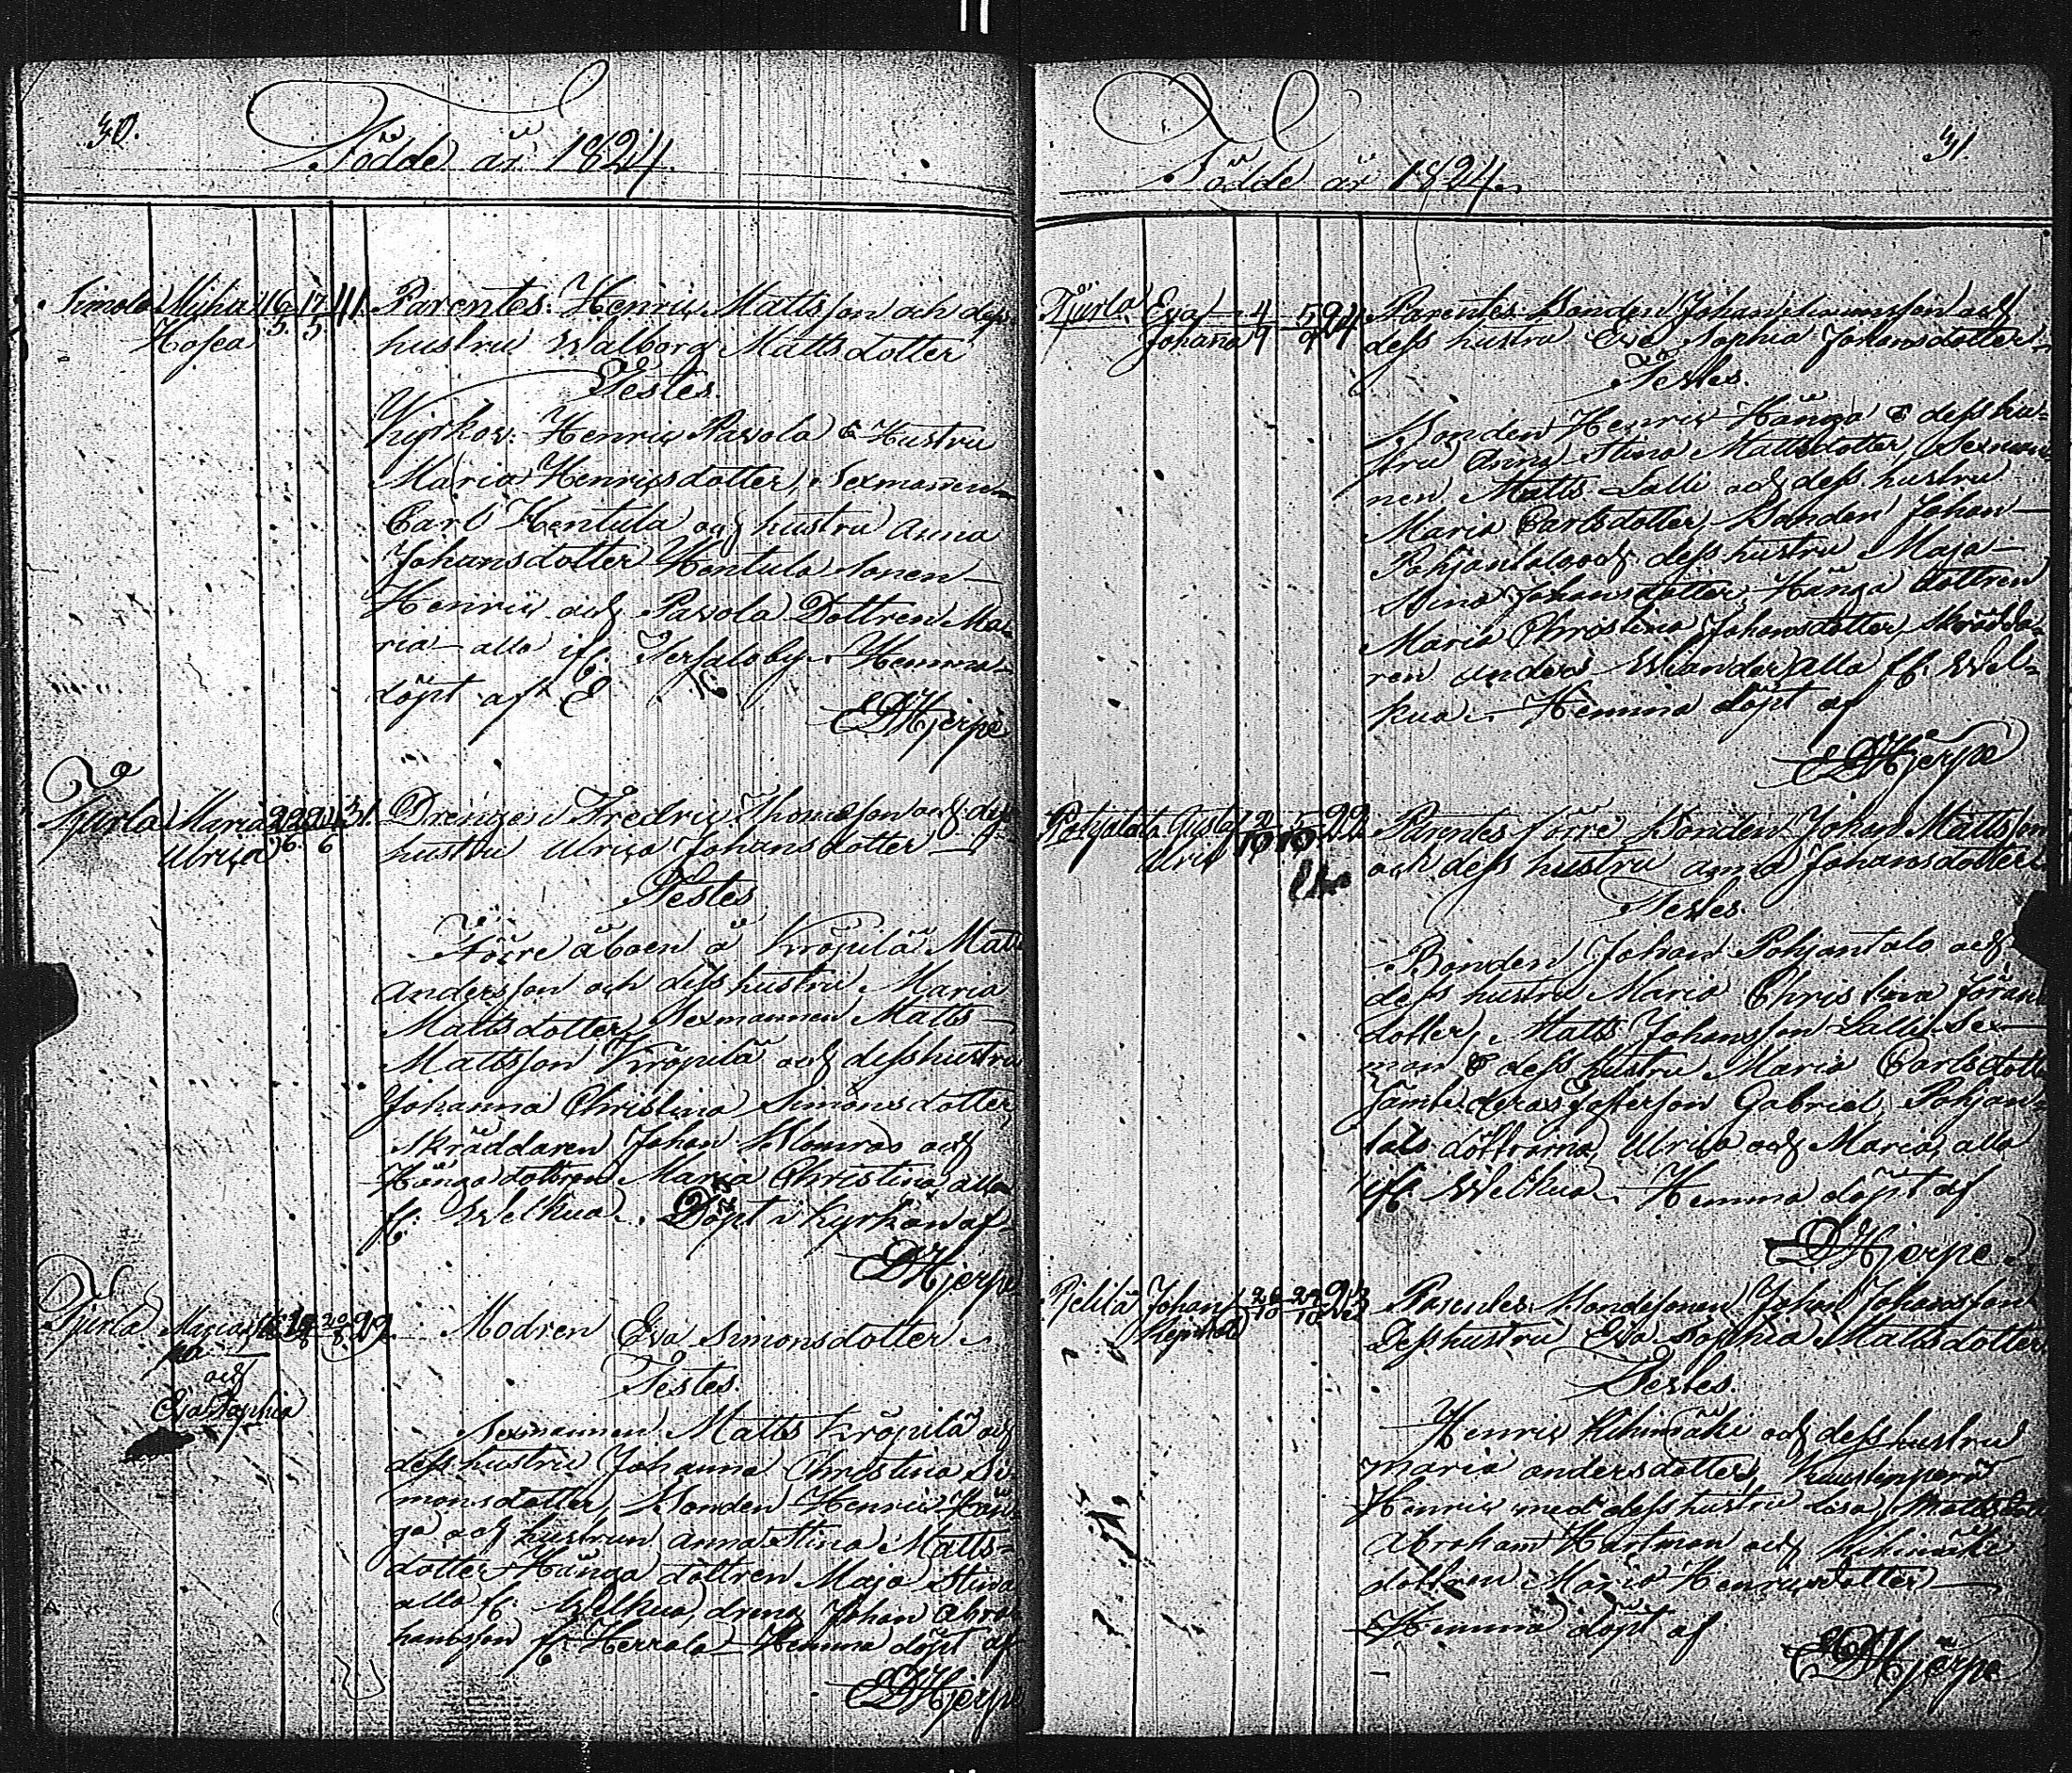 30.
Födde år 1824.
Simola Miha 16/5 17/5 41 Parentes: Henric Mattsson och dess
Hosea hustru Walborg Mattsdotter
Testes.
Kyrkov: Henric Pavola & Hustru
Maria Henricsdotter, Sexmannen
Carl Hentula och hustru Anna
Johansdotter Hentula sonen
Henric och Pavola Dottren Ma-
ria alla if:
Hemma
döpt af
EDHjerpe
Tjurla Maria 22/6 24/6 31. Drengen Fredric Thomasson och dess
Ulrica hustru Ulrica Johansdotter
Testes
Förre åboen å Kröpilä Matts
Andersson och dess hustru Maria
Mattsdotter, Sexmannen Matts
Mattsson Kröpilä och dess hustru
Johanna Christina Simonsdotter,
Skräddaren Johan och
Hänga dottren Maria Christina alla
fr: Welkua. Döpt i Kyrkan af
EDHjerpe
Tjurla Maria Modren Eva Simonsdotter
och
Eva Sophia
Testes.
Sexmannen Matts Kröpilä och
dess hustru Johanna Christina Si-
monsdotter, Bonden Henric Hän-
ga och hustrun Anna Stina Matts-
dotter Hänga dottren Maja Stina
alla fr: Welkua, dreng Johan Abra-
hamsson fr: Herrala Hemma döpt af
EDHjerpe
31.
Födde år 1824.
Tjurla Eva 4/9 5/9 24 Parentes Bonden Johan Simonsson och
Johana dess hustru Eva Sophia Johansdotter
Testes.
Bonden Henric Hänga & dess hu-
stru Anna Stina Mattsdotter, Sexman-
nen Matts Lalli och dess hustru
Maria Carlsdotter, Bonden Johan
Pohjantalo och dess hustru Maja
Stina Johansdotter Hänga dottren
Maria Christina Johansdotter, Skrädda-
ren Anders Wiander alla fr: Wel-
kua. Hemma döpt af
EDHjerpe
Pohjatalo Gustaf 2/10 5/10 22 Parentes förre Bonden Johan Mattsson
Ulric och dess hustru Anna Johansdotter
Testes.
Bonden Johan Pohjantalo och
dess hustru Maria Christina Johans
dotter, Matts Johansson Lalli Sex-
man & dess hustru Maria Carlsdotter
samt deras Gabriel, Pohjan-
talo döttrarna, Ulrica och Maria, alla
if: Welkua. Hemma döpt af
EDHjerpe
Pietilä Johan 26/10 29/10 23 Parentes. Bondesonen Johan Johansson
Reinhold Dess hustru Eva Sophia Mattsdotter
Testes.
Henric Kihimäki och dess hustru
Maria Andersdotter,
Henric med dess hustru Lisa Mattsdotter
Abraham Hartman och Kihimäki
dottren Maria Henricsdotter
Hemma döpt af
EDHjerpe